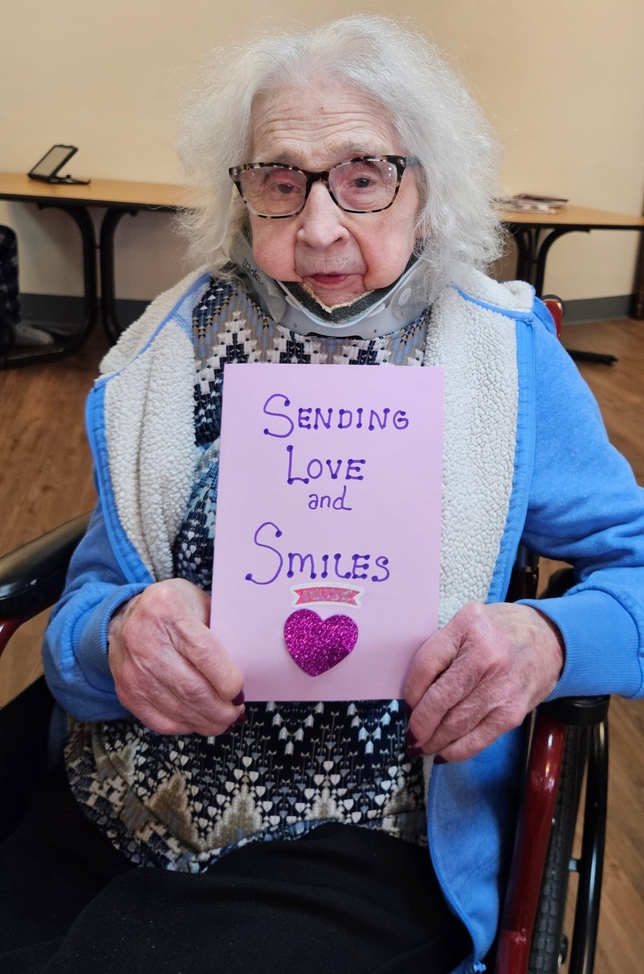 SENDING
LOVE
and
SMILES